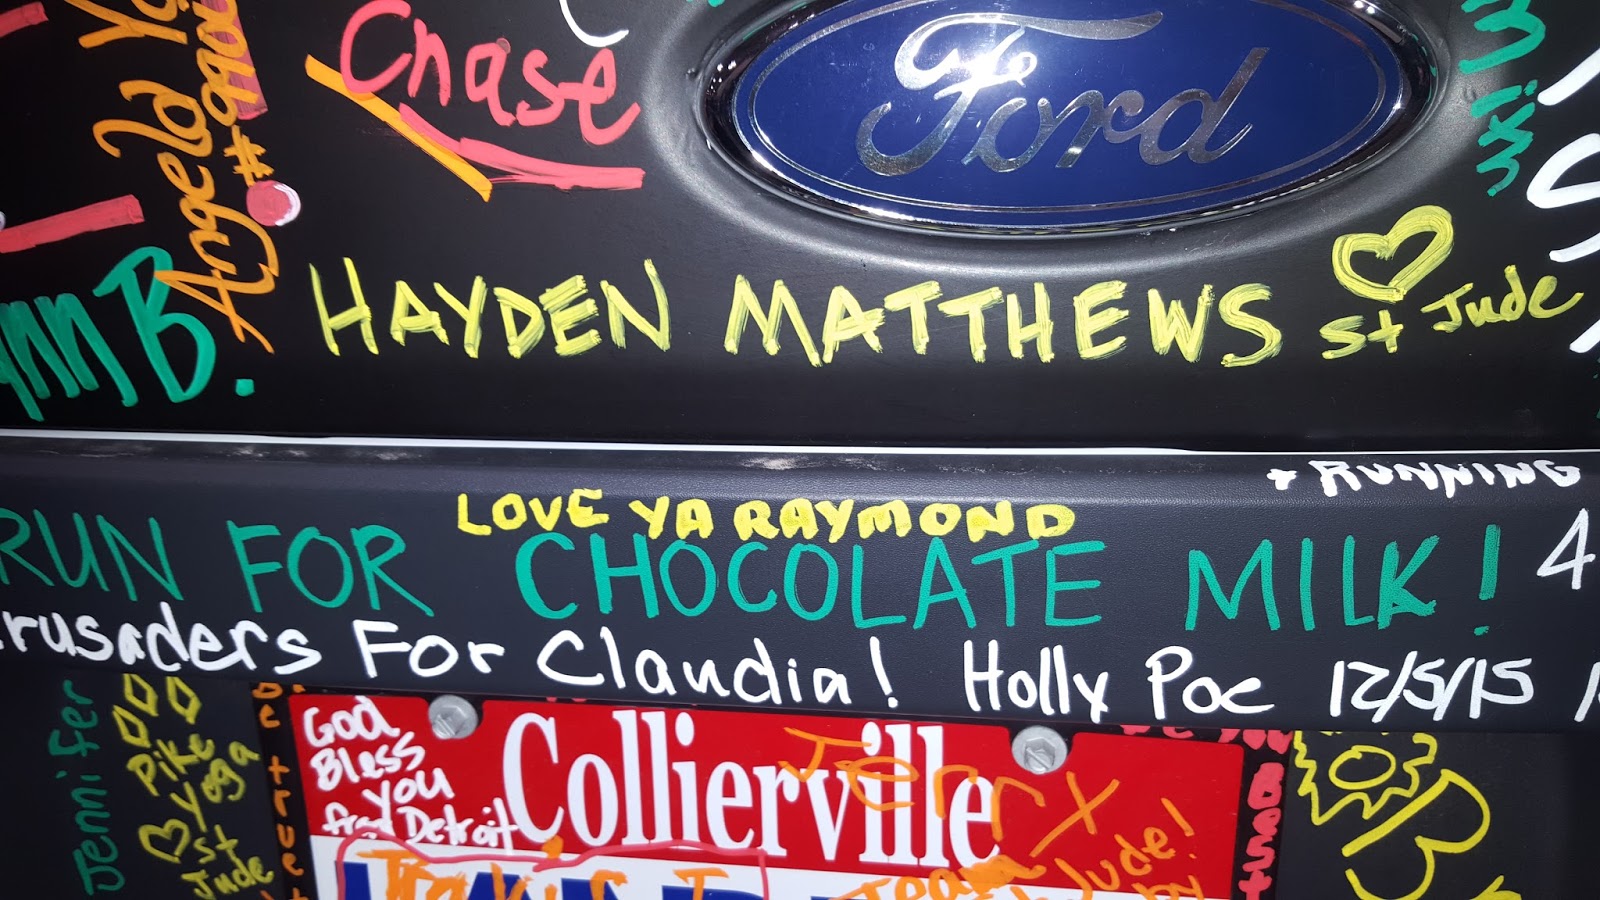 Chase
Ford
Angela
HAYDEN MATTHEWS
St Jude
B.
+ RUNNING
LOVE YA RAYMOND
RUN FOR CHOCOLATE MILK!
4
Crusaders For Claudia! Holly Poe 12/5/15
Jennifer
Pike
Yoga
St
Jude
be true
God
Bless
You
from Detroit
Collierville
Jerry
Jude!